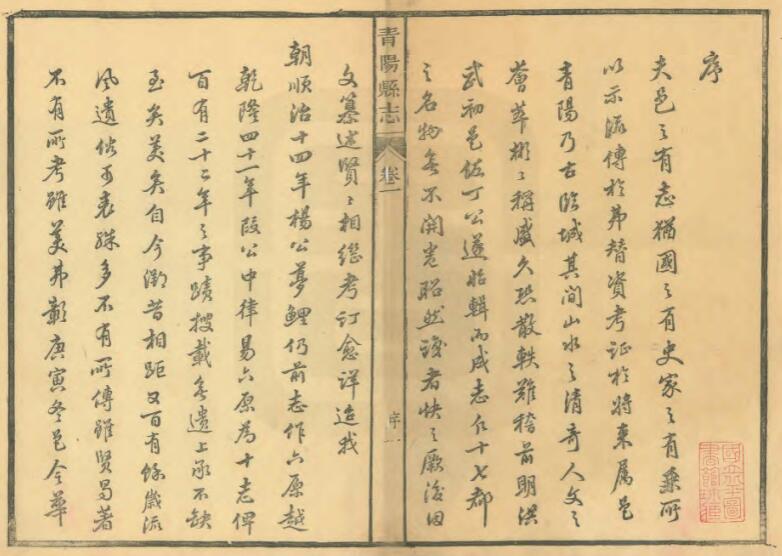 序
夫邑之有志猶國之有史家之有乘所
以示流傳於弗替資考証於將來属邑
青陽乃古臨城其間山水之清奇人文之
薈萃彬彬稱盛久恐散軼難稽前明洪
武初邑佐丁公遂始輯而成志分十七都
之名物無不開卷昭然讀者快之厥後因
青陽縣志
卷一
序一
文纂述賢賢相繼考訂愈詳迨我
朝順治十四年楊公夢鯉仍前志作六原越
乾隆四十一年段公中律易六原為十志俾
百有二十二年之事蹟搜載無遺上承不缺
至矣美矣自今溯昔相距又百有餘歲流
風遺俗可表殊多不有所傳雖賢曷著
不有所考雖美弗彰庚寅冬邑令華
國立北平圖
書館珍藏